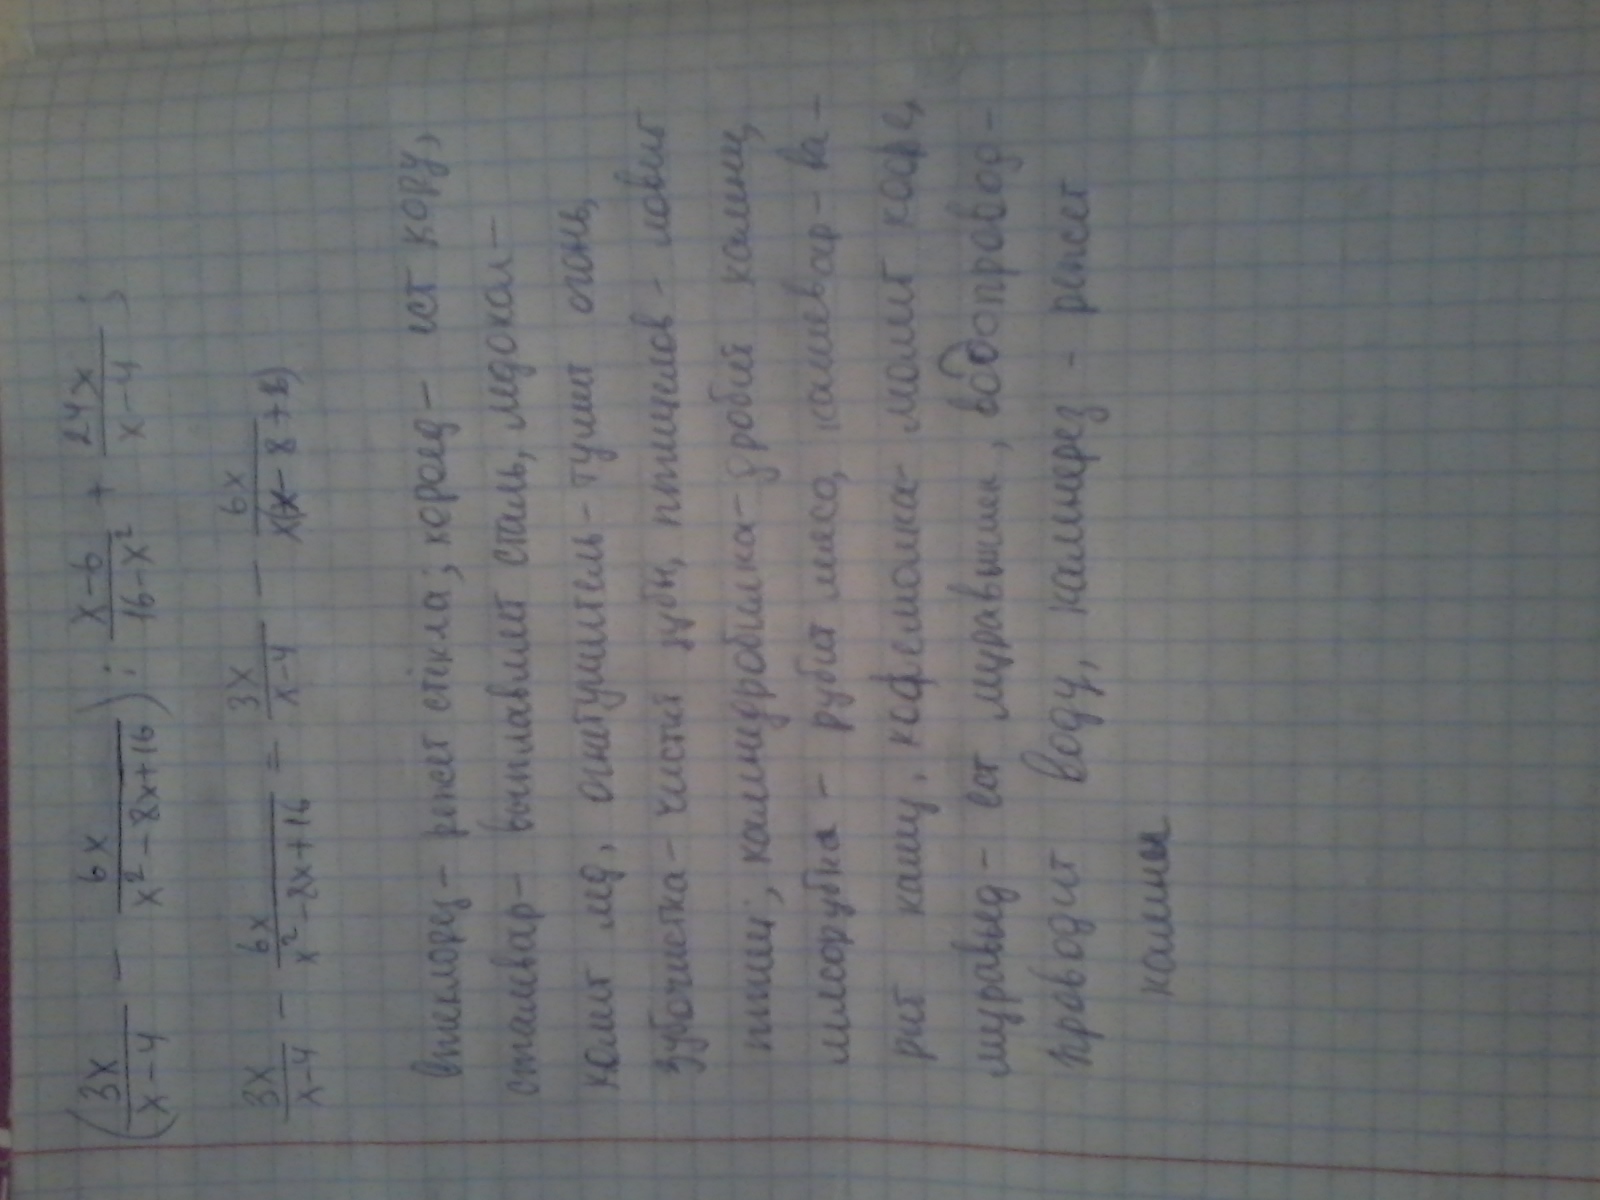 (3x/(x-4) - 6x/(x²-8x+16)) : (x-6)/(16-x²) + 24x/(x-4);
3x/(x-4) - 6x/(x²-8x+16) = 3x/(x-4) - 6x/(x(x-8+8)
стеклорез - режет стёкла; короед - ест кору,
сталевар - выплавляет сталь, ледокол -
колит лёд, огнетушитель - тушит огонь,
зубочистка - чистит зубы, птицелов - ловит
птиц; камнедробилка - дробит камни,
мясорубка - рубит мясо, кашевар - ва-
рит кашу, кофемолка - молит кофе,
муравьед - ест муравьишек, водопровод -
проводит воду, камнерез - режет
камни